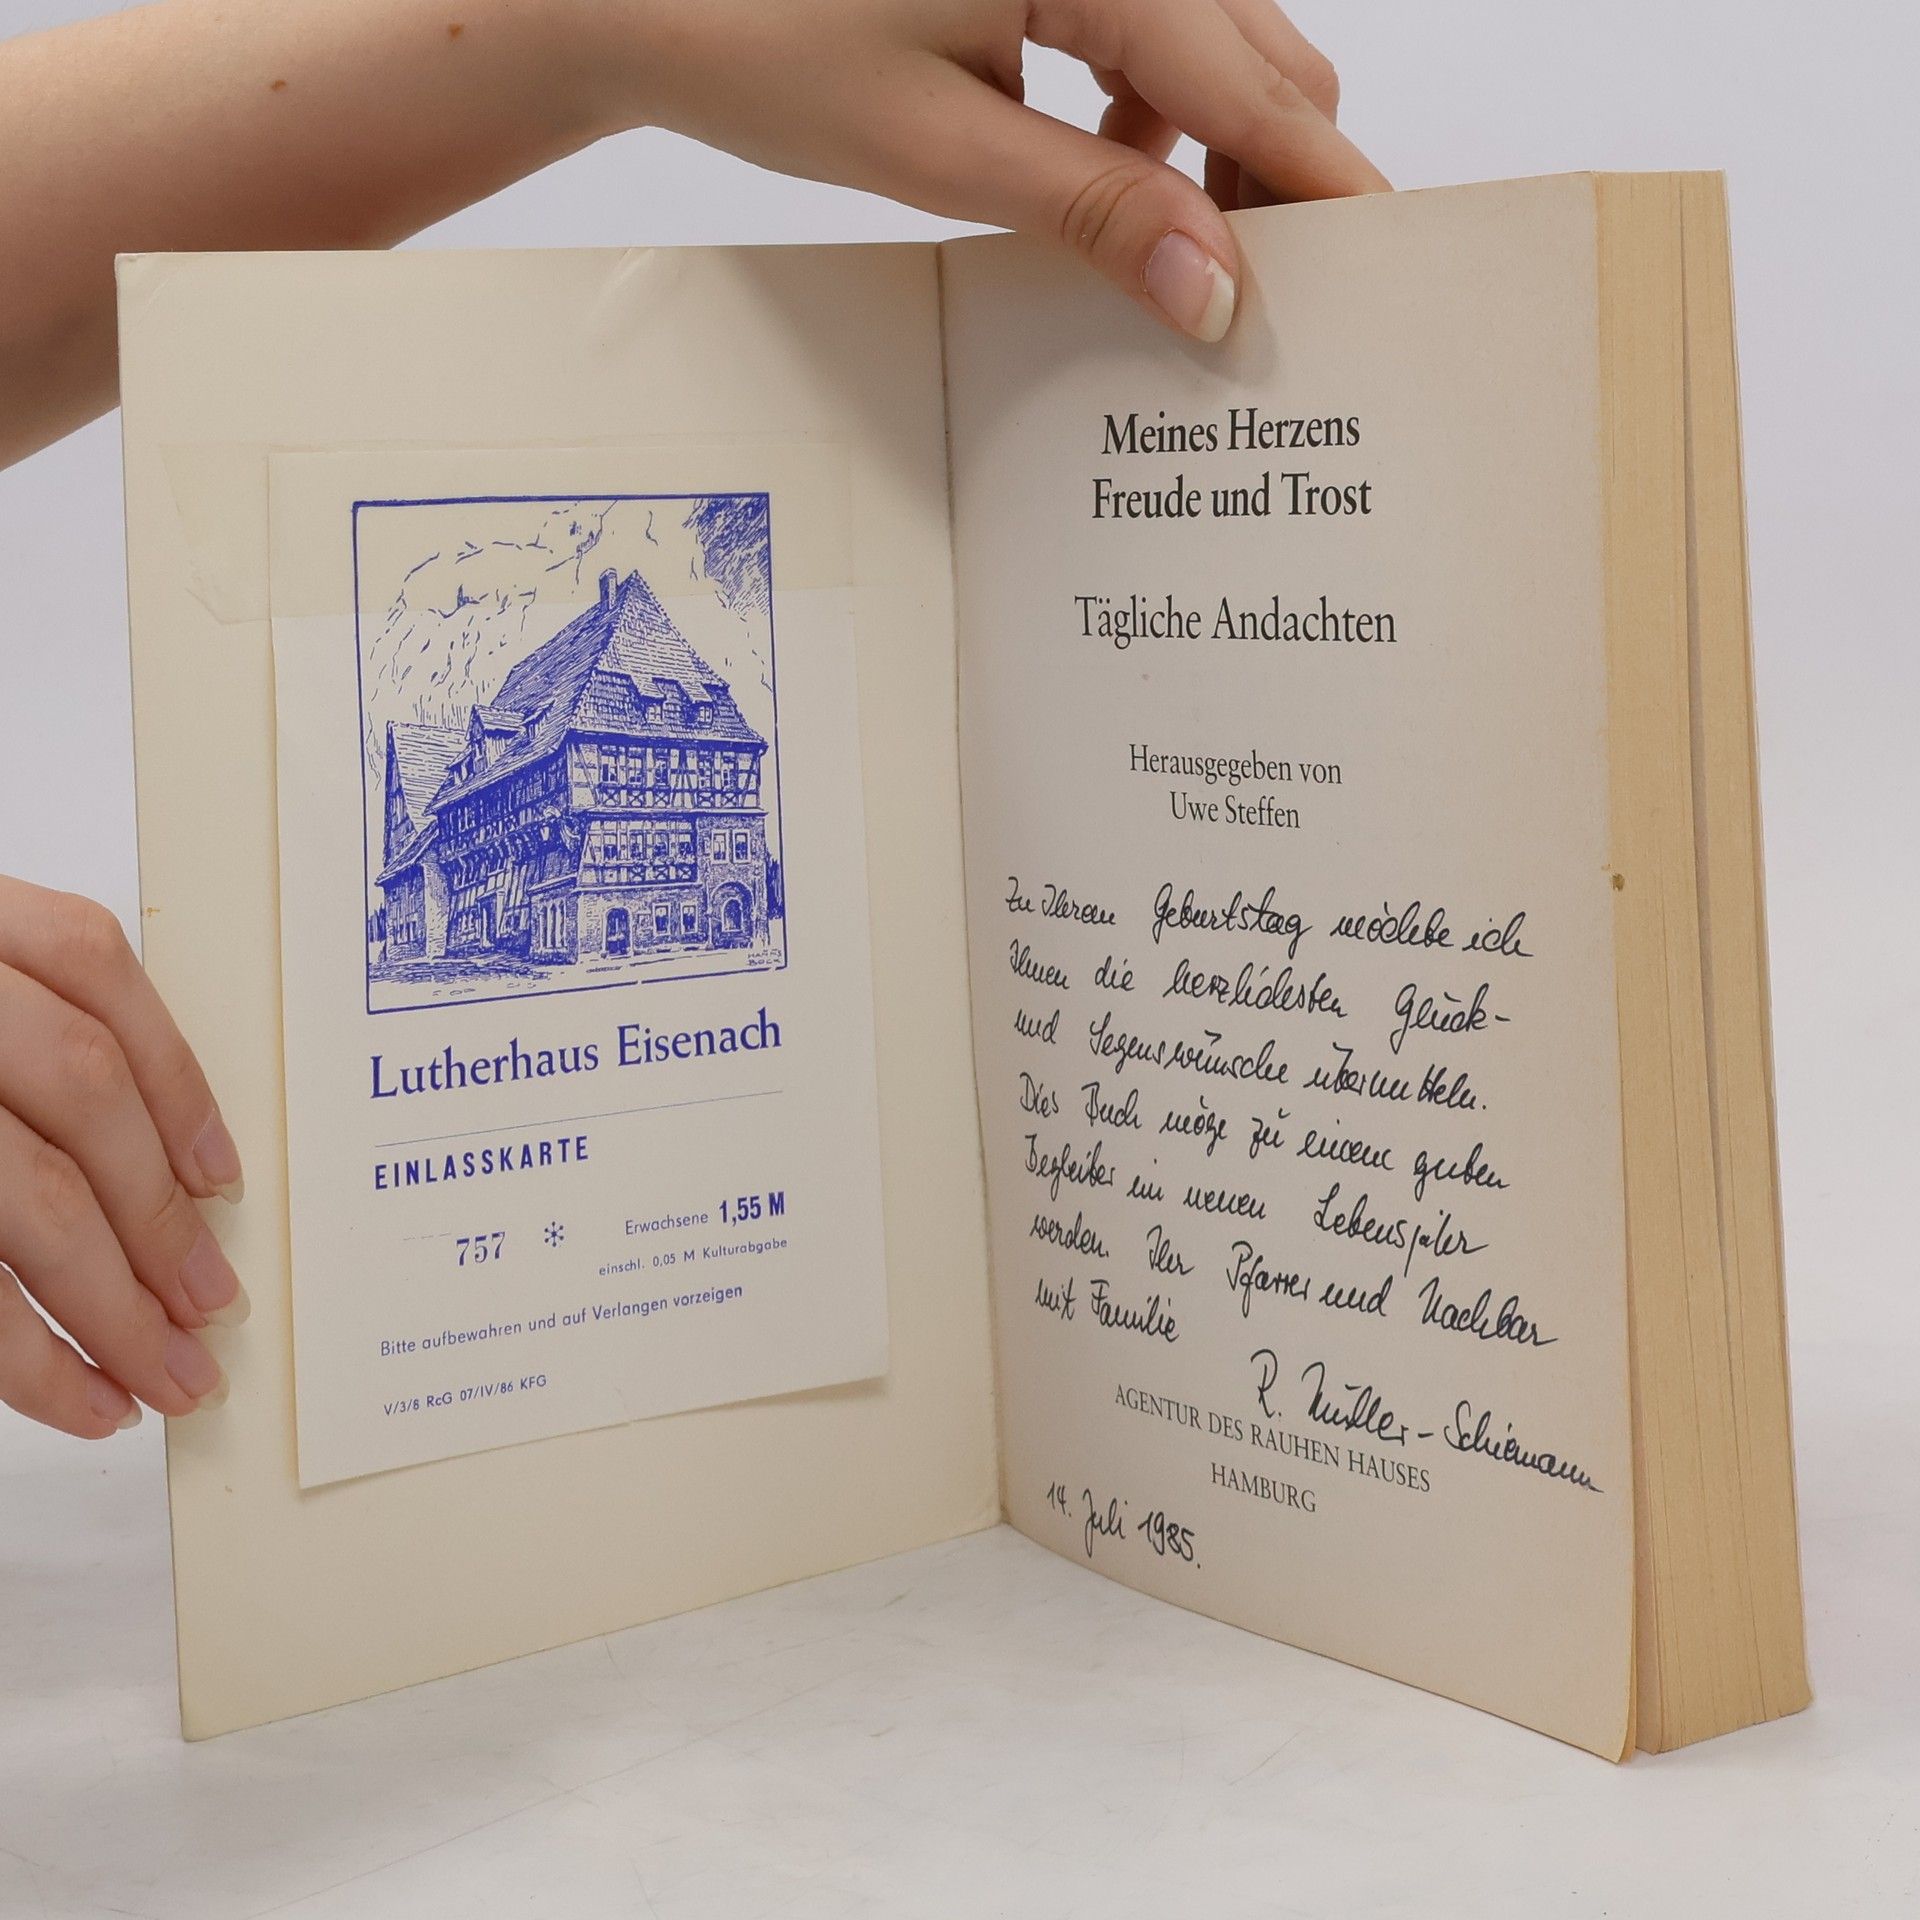 HANNS
BOCK
Lutherhaus Eisenach
EINLASSKARTE
757 * Erwachsene 1,55 M
einschl. 0,05 M Kulturabgabe
Bitte aufbewahren und auf Verlangen vorzeigen
V/3/8 RcG 07/IV/86 KFG
Meines Herzens
Freude und Trost
Tägliche Andachten
Herausgegeben von
Uwe Steffen
Zu Ihrem Geburtstag möchte ich
Ihnen die herzlichsten Glück-
und Segenswünsche übermitteln.
Dies Buch möge zu einem guten
Begleiter im neuen Lebensjahr
werden. Ihr Pfarrer und Nachbar
mit Familie
R. Müller-Schiemann
AGENTUR DES RAUHEN HAUSES
HAMBURG
14. Juli 1985.